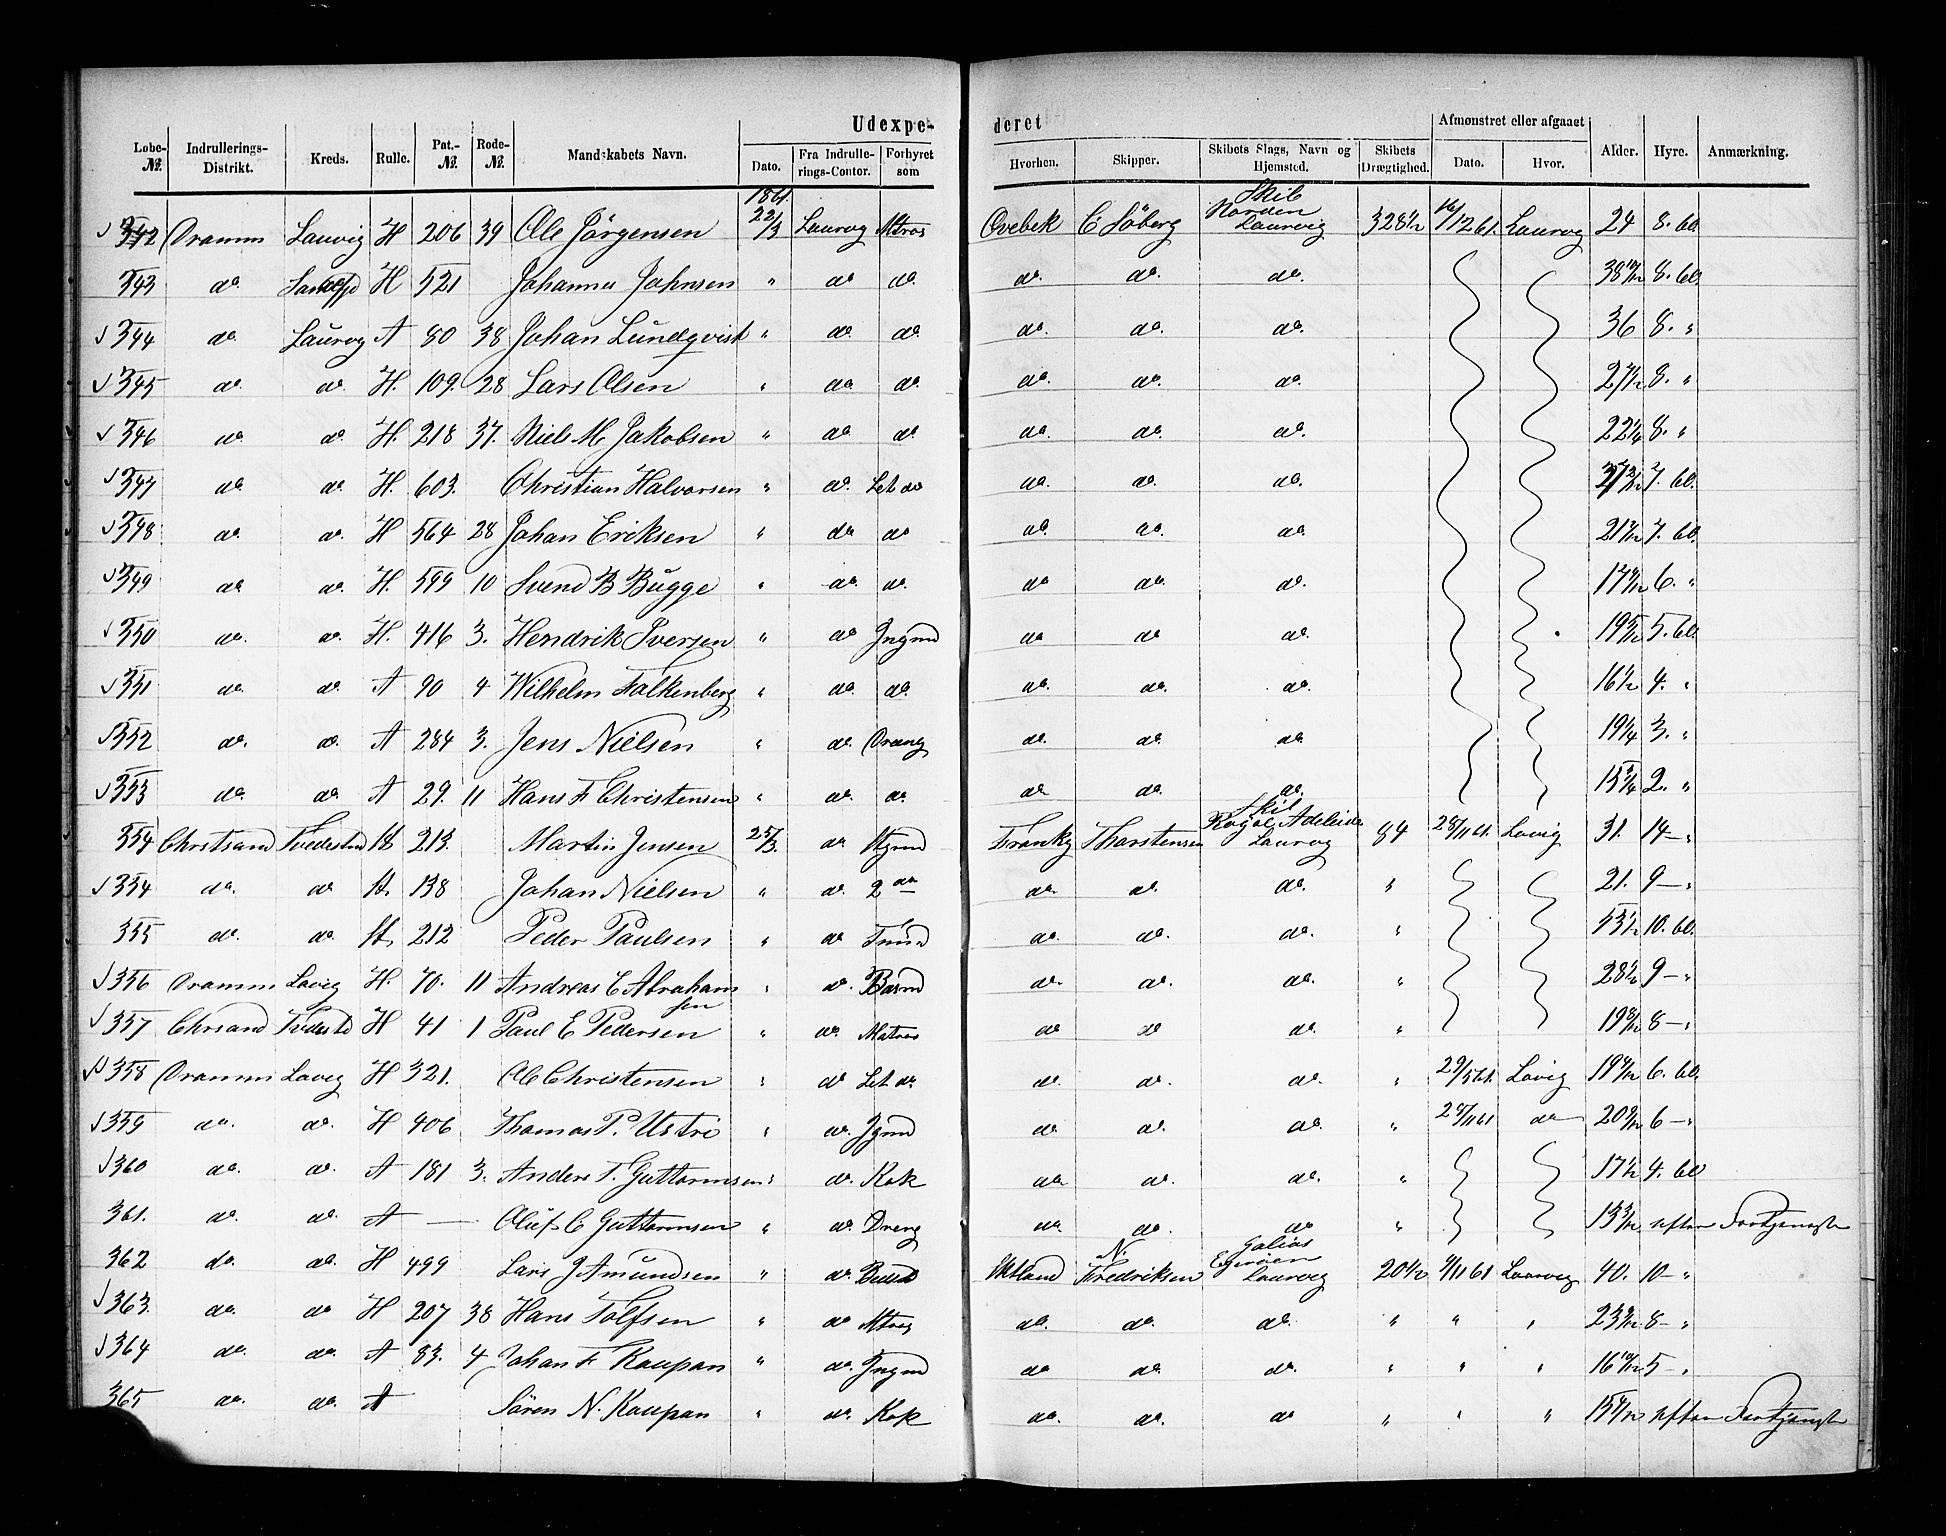 Udexpederet
Løbe-№. Indrullerings-Distrikt. Kreds. Rulle. Pat.-№. Rode-№. Mandskabets Navn. Dato. Fra Indrullerings-Contor. Forhyret som Hvorhen. Skipper. Skibets Slags, Navn og Hjemsted. Skibets Drægtighed. Afmønstret eller afgaaet Dato. Hvor. Alder. Hyre. Anmærkning.
1861.
342 Dramm Laurvig H 206 39 Ole Jörgensen 22/3 Laurvg Mtros C Söberg Skib Norden Laurvig 328½ 16/12 61. Laurvg 24 8. 60.
343 do H 521 Johannes Johnsen " do do. do. do. do. 38 8. 60.
344 do Laurvg A 80 38 Johan Lundqvist " do. do. do. do. do. 36 8. "
345 do. do. H. 109. 28 Lars Olsen " do do. do. do. do. 8. "
346 do do. H. 218 37. Niels M Jakobsen " do do. do. do. do. 22¼ 8. "
347 do do. H. 603. Christian Halvorsen " do. Let do do. do. do. 7. 60.
348 do do. H 564 28 Johan Eriksen " do do do. do. do. 7. 60.
349 do do. H. 599 10 Svend B Bugge " do. do. do do. do. 6. "
350 do. do. H. 416 3. Hendrik Iversen " do Jngmd do do do. 5. 60.
351 do. do. A 90 4 Wilhelm Falkenberg " do. do. do. do. do. 16½ 4. "
352 do. do. A 284 3. Jens Nielsen " do. Dreng do. do. do 19¼ 3. "
353 do. do. A 29. 11 Hans F Christensen " do. do. do do. do. 15¾ 2. "
354 Christsand Tvedestrd H 213. Martin Jensen 25/3. do Thorstensen Skib Royal Adeleide Laurvg 84 28/11 61. Lavig 31. 14 – "
354 do. do H. 138 Johan Nielsen " do. 2 do do. do. do. " 21. 9 – "
355 do. do. H. 212 Peder Paulsen " do do. do. do. " 53½ 10. 60.
356 Dramm Lavig H. 70. 11 Andreas C Abrahamsen " do. do. do. do. " 28½ 9 – "
357 Chrsand Tvedestd H 41 1 Paul E Pedersen " do. Matros do do do. " 8 – "
358 Dramm Lavig H 321. Ole Christensen " do Let do. do. do. do. " 29/5 61. Lavig 6. 60.
359 do. do. H 406 Thomas P. Ustri " do. Jgmd do. do. do. " 28/11 61 do 6 – "
360 do. do. A 181 3. Anders T. Guttormsen " do. Kok do do. do. " 17½ 4. 60
361. do. do. A — Oluf C Guttormsen " do. Dreng do. do. do " 13 efter Fortjeneste
362 do. do. H 499 Lars J Amundsen " do. N. Fredriksen Galias Laurvig 20½ 9/11 61 Laurvig 40. 10 – "
363. do. do H 207 38 Hans Tolfsen " do Mtros do. do. do. " " " 8 – "
364 do. do. A 83. 4 Johan F Kaupan " do. Jngmd do do. do. " " " 16 5 – "
365 do. do. A Sören N. Kaupan " do. Kok do. do. do " " " 15 efter Fortjeneste